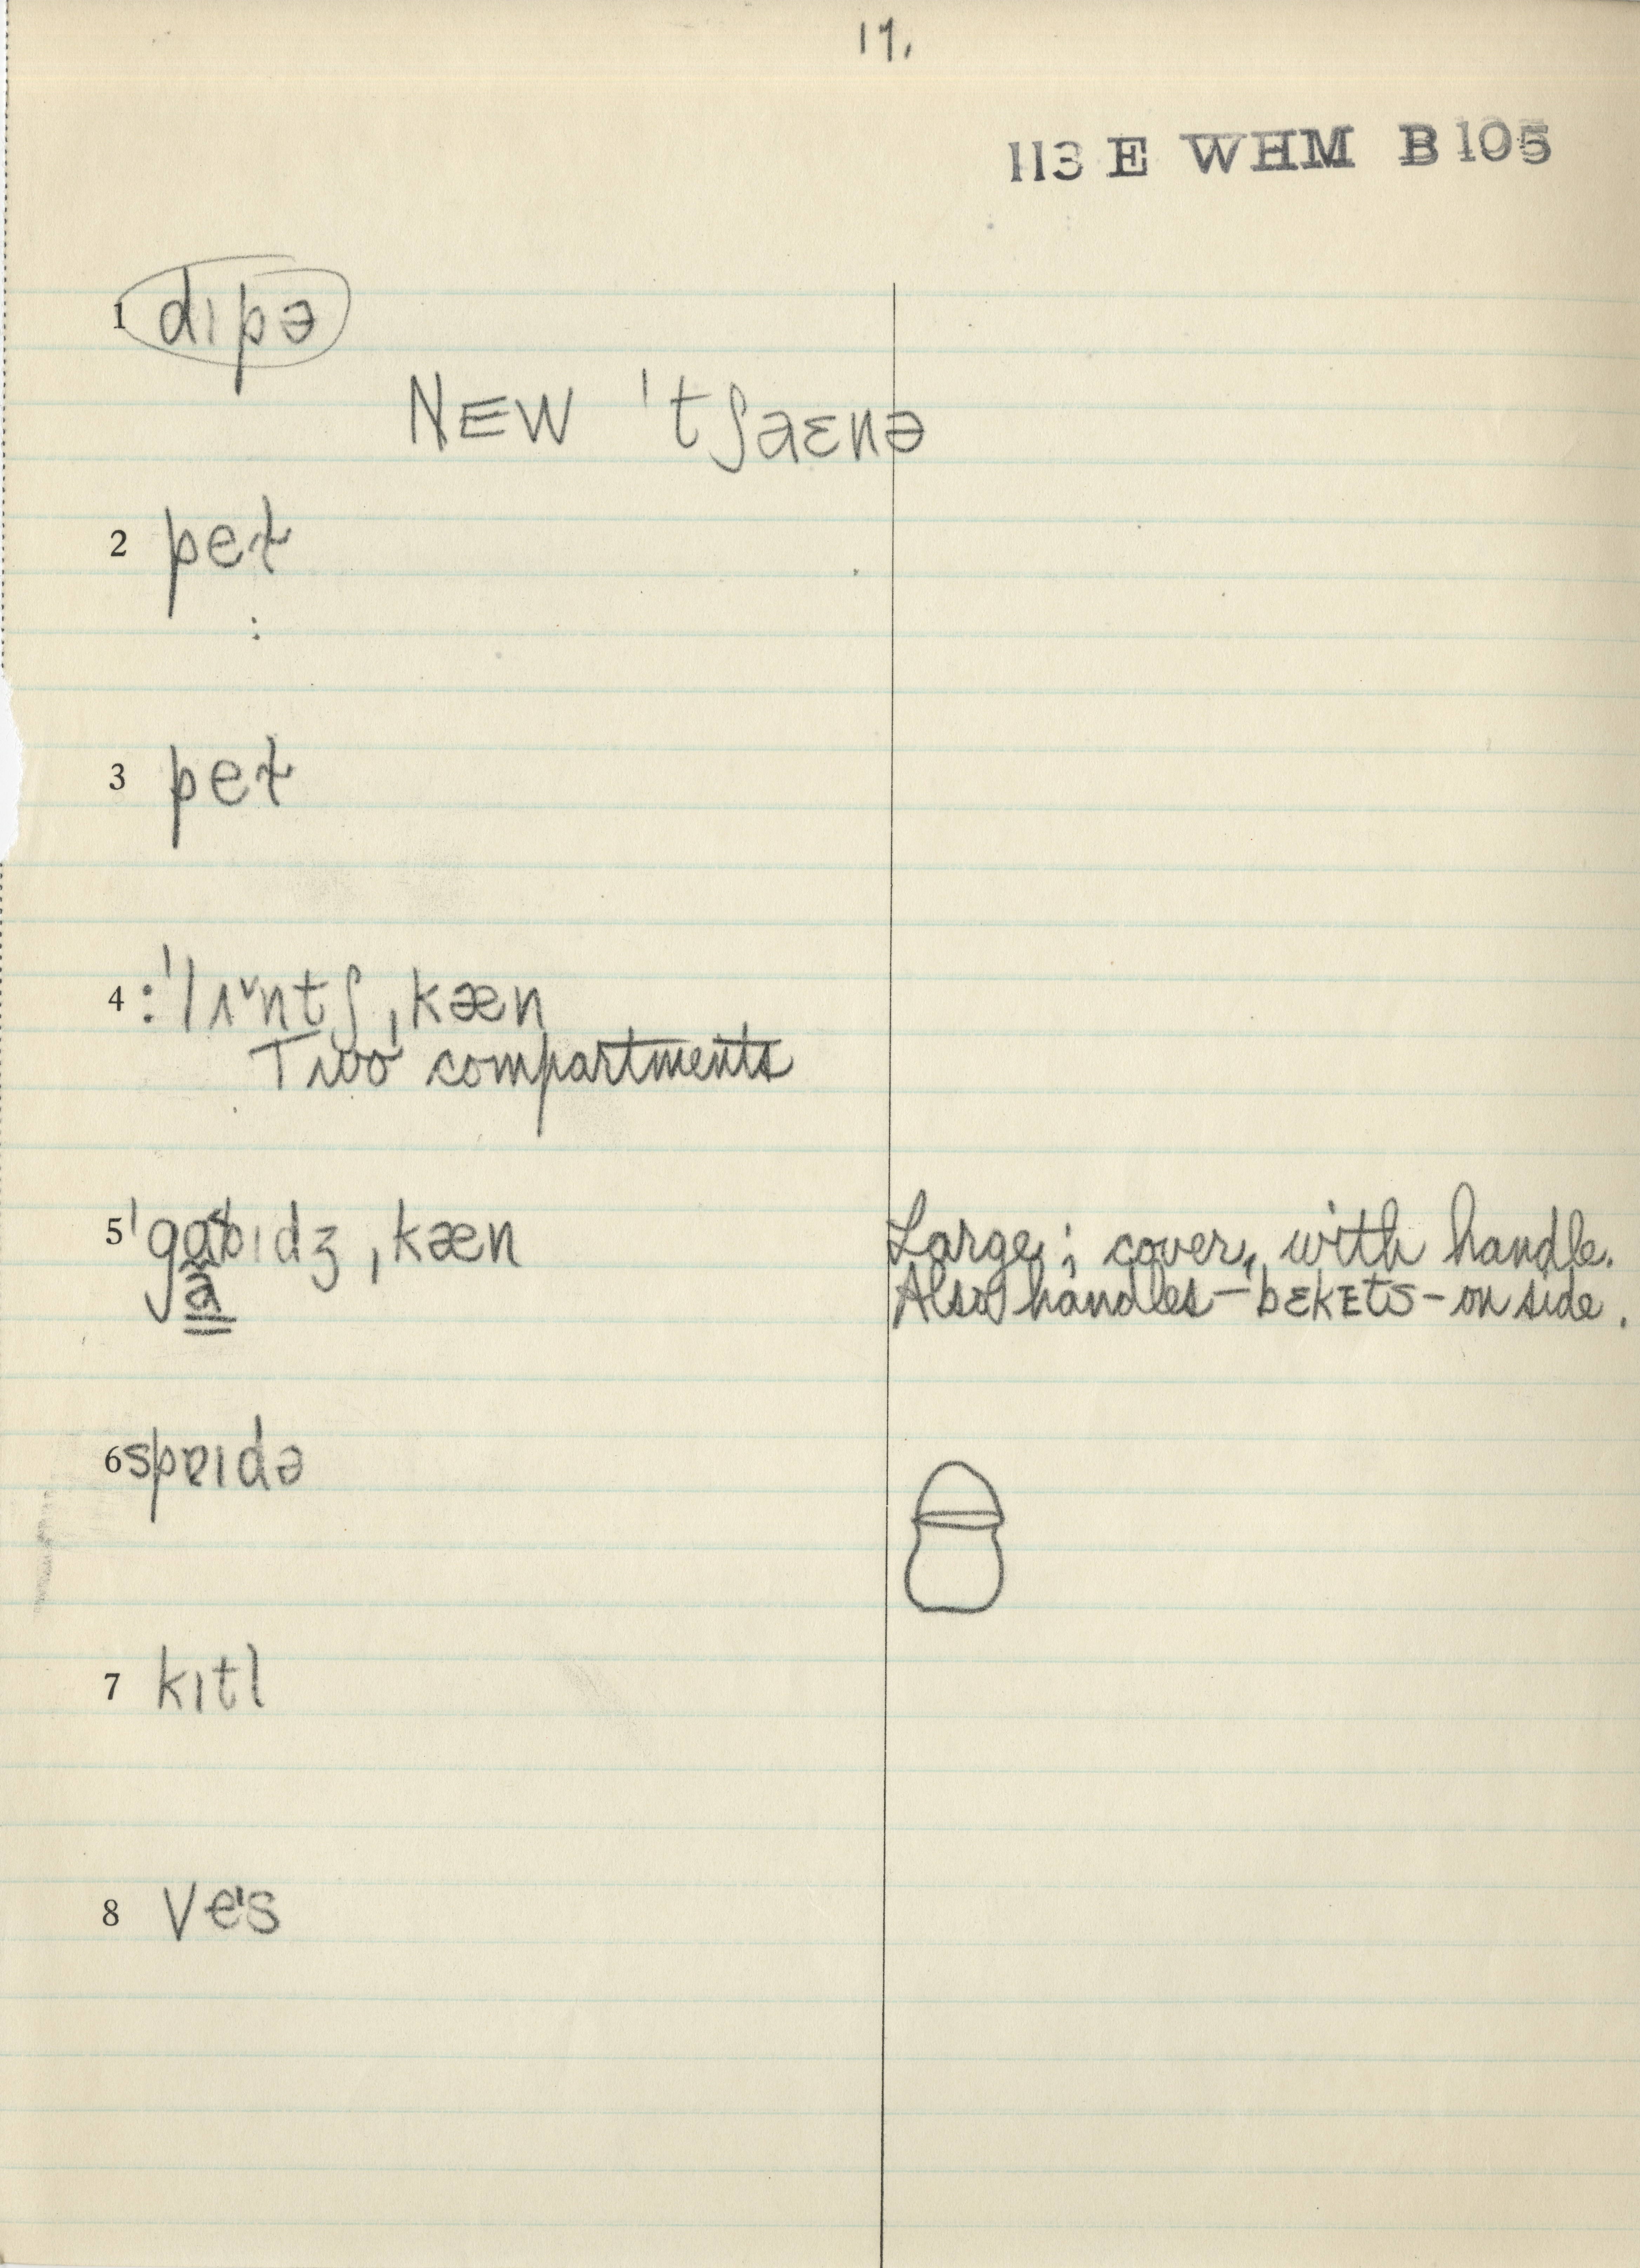 17.
113 E WHM B105
1 dɪpə
NEW ˈtʃaɛnə
2 peɫ
:
3 peɫ
4 :ˈlɪˇntʃˌkæn
Two compartments
5 ˈgabɪdʒˌkæn Large; cover, with handle.
a Also handles—bɛkɛts—on side.
6 spɐɪdə
7 kɪtl
8 veˈs